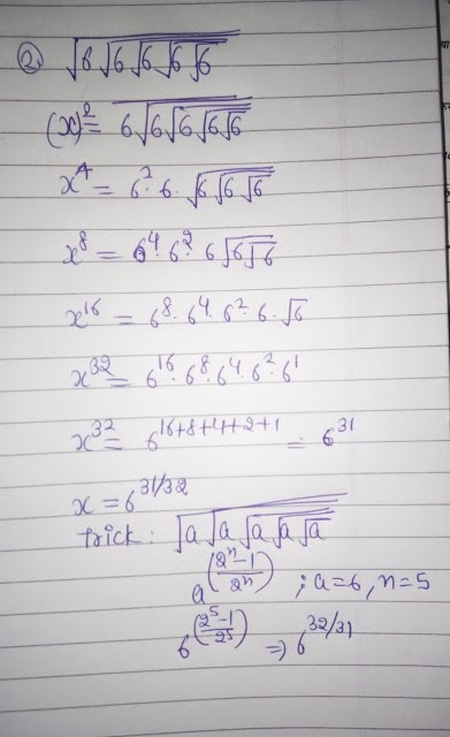 ② √6√6√6√6√6
(x)² = 6√6√6√6√6
x⁴ = 6².6.√6√6√6
x⁸ = 6⁴.6².6√6√6
x¹⁶ = 6⁸.6⁴.6².6.√6
x³² = 6¹⁶.6⁸.6⁴.6².6¹
x³² = 6^(16+8+4+2+1) = 6³¹
x = 6^(31/32)
trick : √a√a√a√a√a
a^((2ⁿ-1)/2ⁿ) ; a=6, n=5
6^((2⁵-1)/2⁵) ⇒ 6^(32/31)